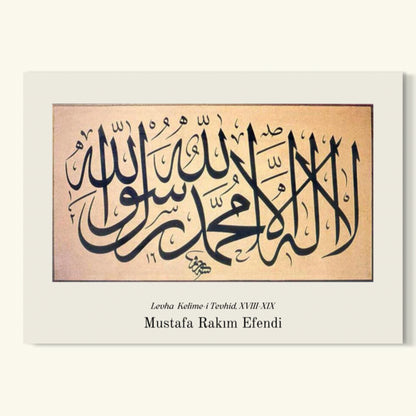 لا اله الا الله محمد رسول الله
Levha Kelime-i Tevhid, XVIII-XIX
Mustafa Rakım Efendi